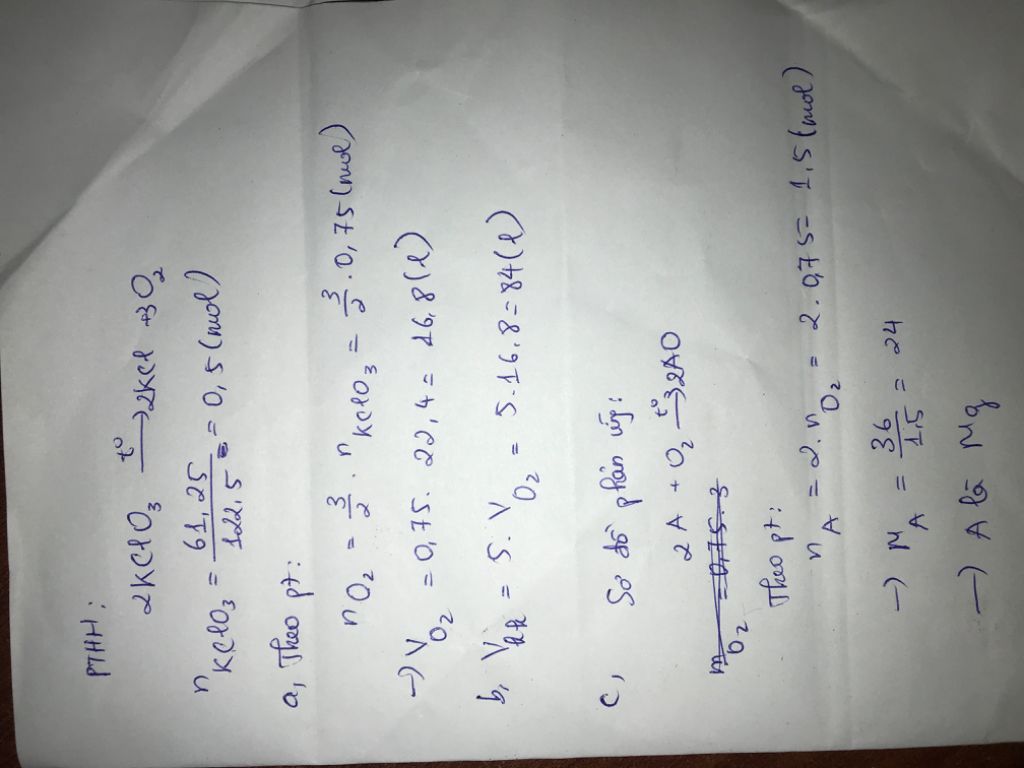 PTHH:
2KClO₃ t°→ 2KCl + 3O₂
n KClO₃ = 61,25/122,5 = 0,5 (mol)
a, Theo pt:
nO₂ = 3/2 . n KClO₃ = 3/2 . 0,75 (mol)
→ V O₂ = 0,75 . 22,4 = 16,8 (l)
b, Vkk = 5. V O₂ = 5. 16,8 = 84 (l)
c, Sơ đồ phản ứng:
2A + O₂ t°→ 2AO
Theo pt:
n A = 2. n O₂ = 2. 0,75 = 1,5 (mol)
→ M A = 36/1,5 = 24
→ A là Mg